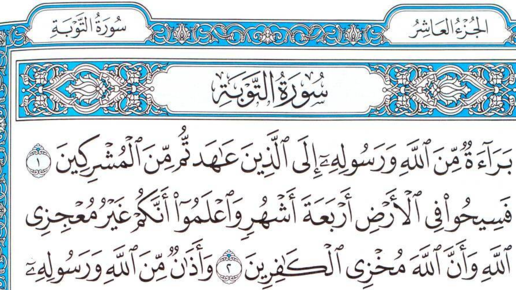 الجُزْءُ العَاشِرُ
سُورَةُ التَّوْبَةِ
سُورَةُ التَّوْبَةِ
بَرَآءَةٌ مِّنَ ٱللَّهِ وَرَسُولِهِۦٓ إِلَى ٱلَّذِينَ عَٰهَدتُّم مِّنَ ٱلْمُشْرِكِينَ ١
فَسِيحُوا۟ فِى ٱلْأَرْضِ أَرْبَعَةَ أَشْهُرٍ وَٱعْلَمُوٓا۟ أَنَّكُمْ غَيْرُ مُعْجِزِى
ٱللَّهِ وَأَنَّ ٱللَّهَ مُخْزِى ٱلْكَٰفِرِينَ ٢ وَأَذَٰنٌ مِّنَ ٱللَّهِ وَرَسُولِهِۦٓ